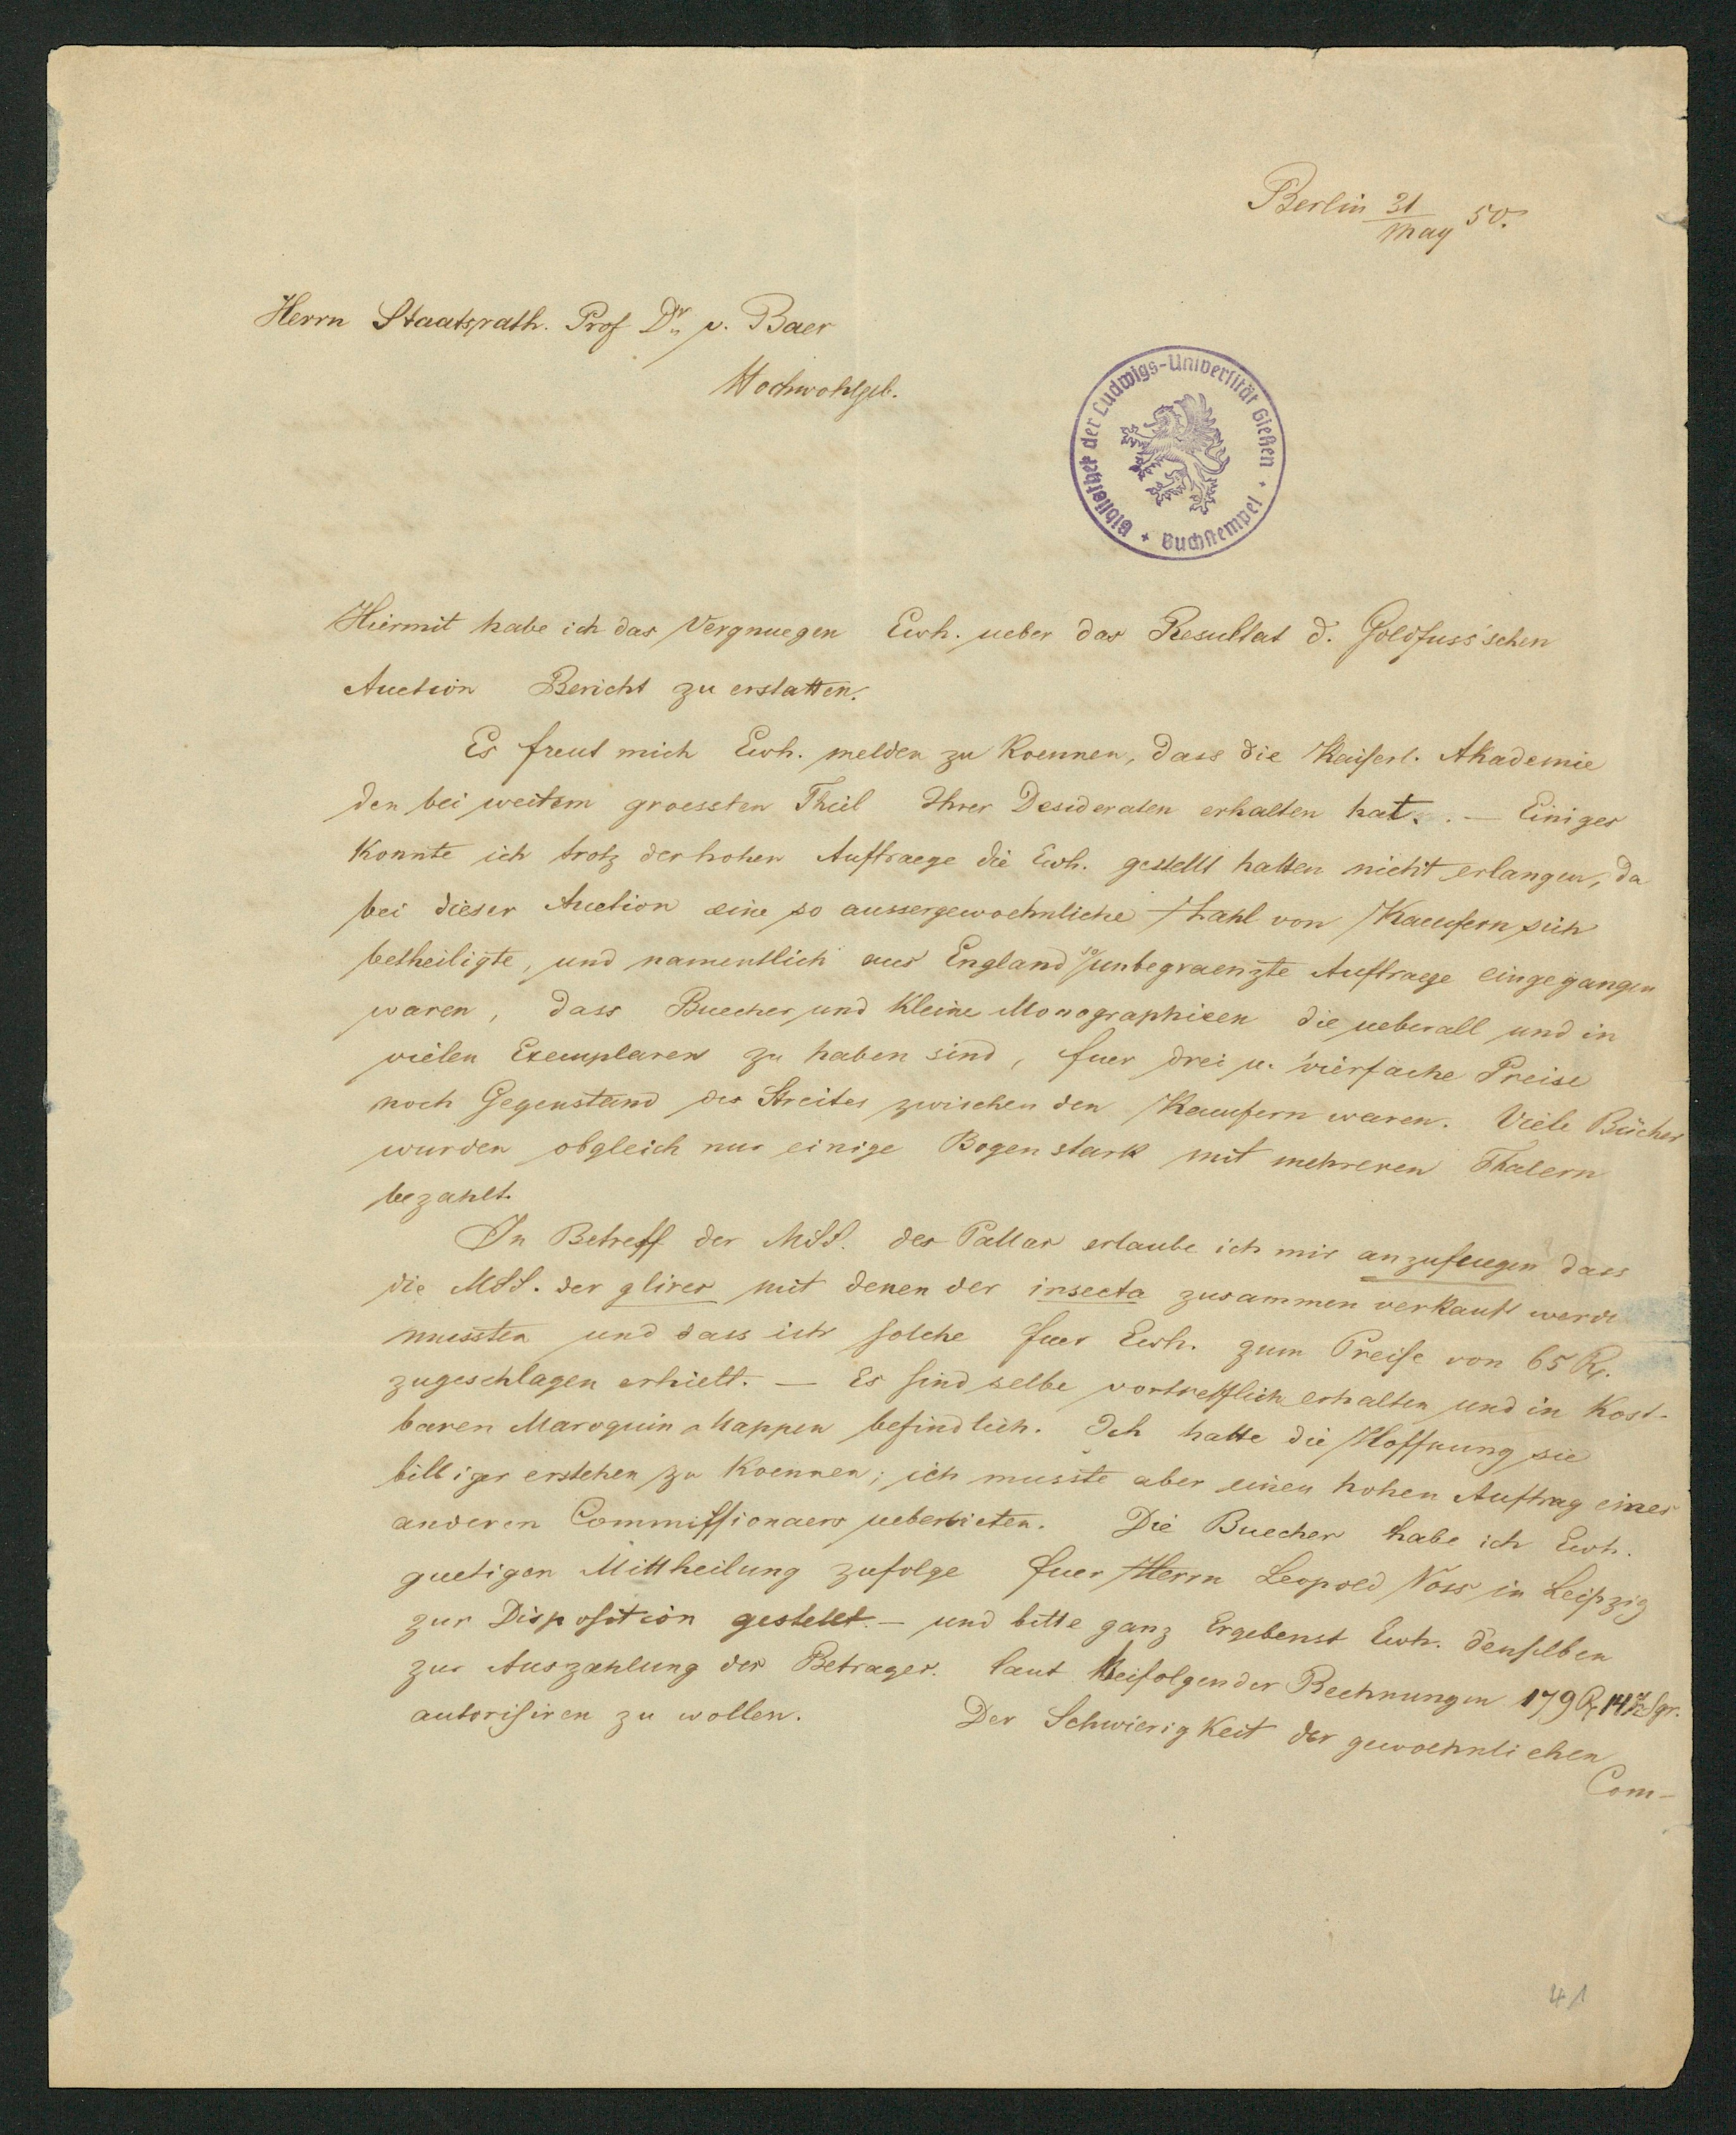 Berlin 31/May 50.
Herrn Staatsrath. Prof Dr. v. Baer
Hochwohlgeb.
Bibliothek der Ludwigs-Universität Gießen + Buchstempel +
Hiermit habe ich das Vergnuegen Ewh. ueber das Resultat d. Goldfuss'schen
Auction Bericht zu erstatten.
Es freut mich Ewh. melden zu koennen, dass die Kaiserl. Akademie
den bei weitem groessten Theil Ihrer Desideraten erhalten hat. — Einiges
konnte ich trotz der hohen Auftraege die Ewh. gestellt hatten nicht erlangen, da
bei dieser Auction eine so aussergewoehnliche Zahl von Kaeufern sich
betheiligte, und namentlich aus England so unbegraenzte Auftraege eingegangen
waren, dass Buecher und kleine Monographieen die ueberall und in
vielen Exemplaren zu haben sind, fuer drei u. vierfache Preise
noch Gegenstand des Streites zwischen den Kaeufern waren. Viele Bücher
wurden obgleich nur einige Bogen stark mit mehreren Thalern
bezahlt.
In Betreff der MSS. des Pallas erlaube ich mir anzufuegen dass
die MSS. der glires mit denen der insecta zusammen verkauft werde
mussten und dass ich solche fuer Ewh. zum Preise von 65 Rt.
zugeschlagen erhielt. — Es sind selbe vortrefflich erhalten und in kost-
baren Maroquin Mappen befindlich. Ich hatte die Hoffnung sie
billiger erstehen zu koennen; ich musste aber einen hohen Auftrag eines
anderen Commissionaers ueberbieten. Die Buecher habe ich Ewh.
guetigen Mittheilung zufolge fuer Herrn Leopold Voss in Leipzig
zur Disposition gestellt — und bitte ganz Ergebenst Ewh. denselben
zur Auszahlung des Betrages laut beifolgender Rechnungen 179 Rt 14 1/2 Sgr.
autorisiren zu wollen. Der Schwierigkeit der gewoehnlichen
Com-
41